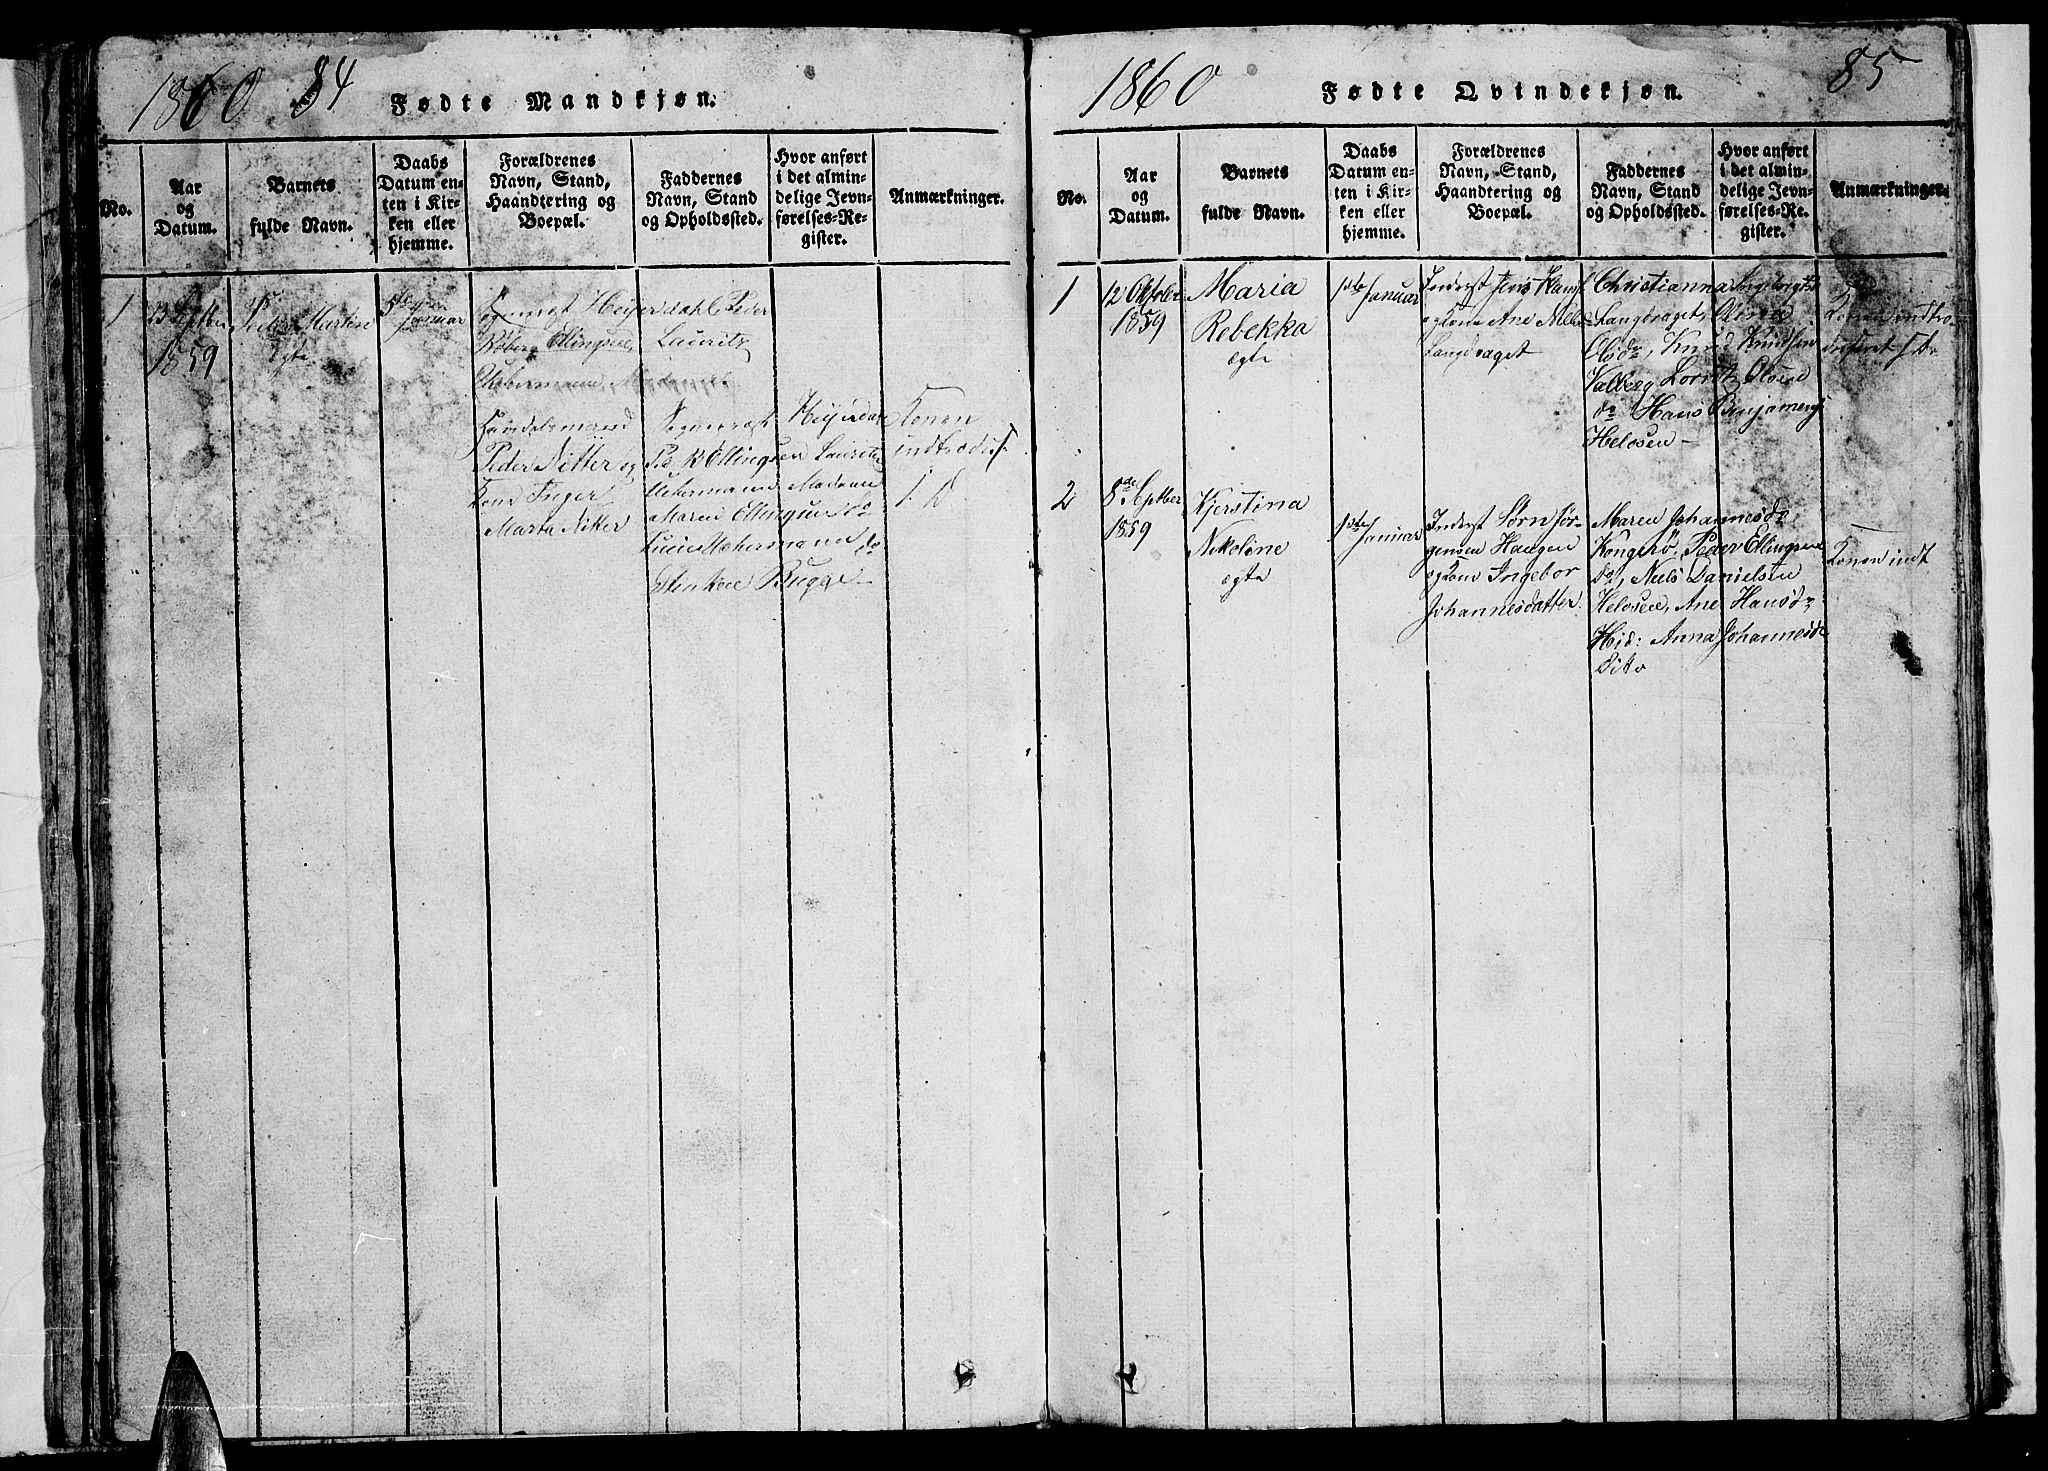 1860 84
Fødte Mandkjøn.
No.
Aar
og
Datum.
Barnets
fulde Navn.
Daabs
Datum en-
ten i Kir-
ken eller
hjemme.
Forældrenes
Navn, Stand,
Haandtering og
Boepæl.
Faddernes
Navn, Stand
og Opholdssted.
Hvor anført
i det almin-
delige Jevn-
førelses-Re-
gister.
Anmærkninger.
1
13 Septber
1859
Peder Martin
ægte
5te
Januar
Sognepræst Heijerdahl Peder
Ellingsen, Lauritz
Madame
Handelsmand
Peder Nitter og
Kone Inger
Marta
Sognepræst Heijerdal
Ped R Ellingsen Lauritz
Madam
Maren Ellingsen do
do
Bugge
Konen
1860
Fødte Qvindekjøn.
85
No.
Aar
og
Datum.
Barnets
fulde Navn.
Daabs
Datum en-
ten i Kir-
ken eller
hjemme.
Forældrenes
Navn, Stand,
Haandtering og
Boepæl.
Faddernes
Navn, Stand
og Opholdssted.
Hvor anført
i det almin-
delige Jevn-
førelses-Re-
gister.
Anmærkninger.
1
12 Oktober
1859
Maria
Rebekka
ægte
1ste Januar
Inderst Jens
og Kone Ane
Langdraget
Christianna Ingeborgsd
Langdraget, Olina
Olsdr, Knud Knudsen
Valberg Lornts Olsen
do Hans Benjamens
Helosen
Konen indtro-
2
8de Septber
1859
Kjerstina
Nikoline
ægte
1ste Januar
Inderst Sørn Jør-
gensen Haugen
og Kone Ingebor
Johannesdatter
Maren Johannesdr
Kongsrø, Peder Ellingsen
do, Niels Danielsen
Helosen, Ane Hansdr
Hid: Anna Johannesdr
Dito
Konen indt